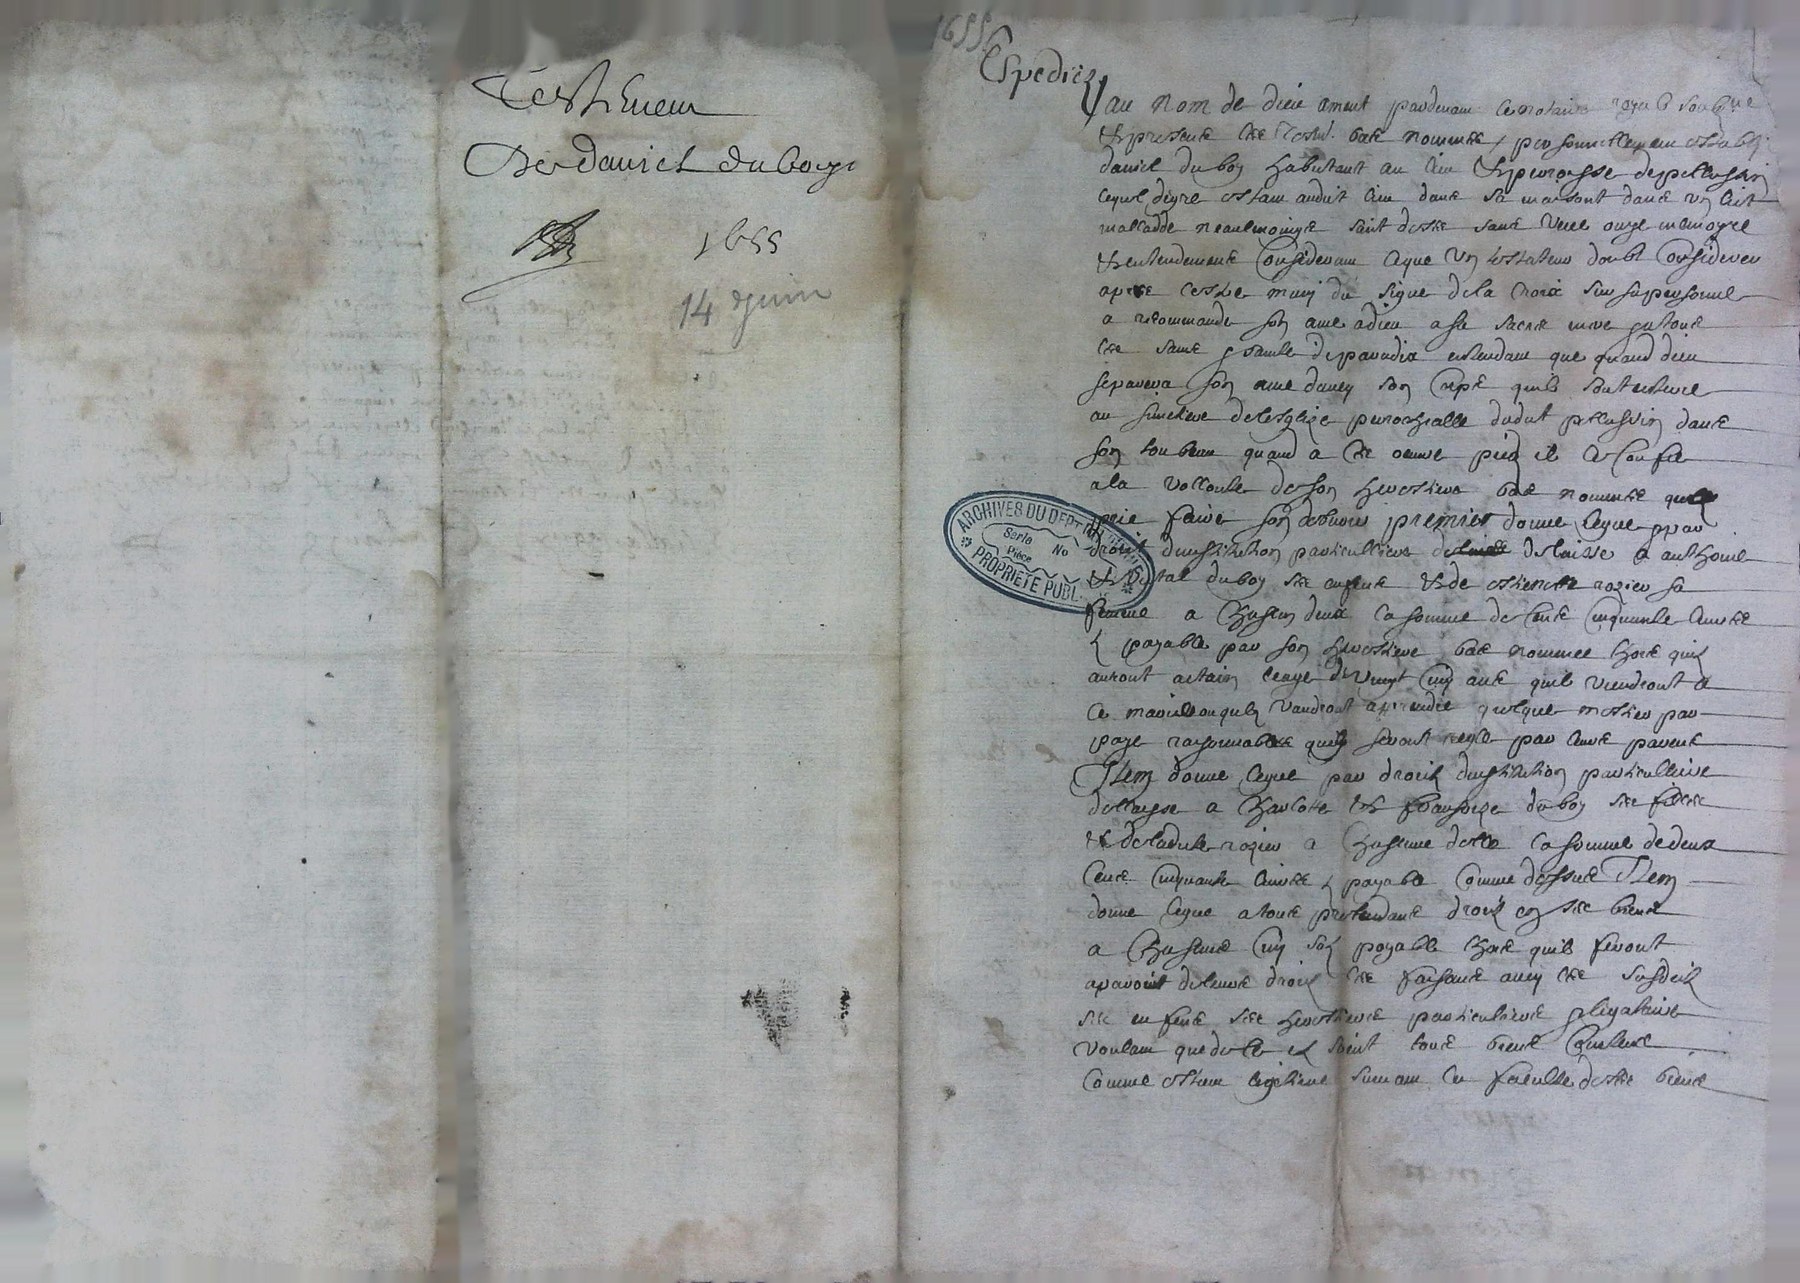 Testemen
De daniel du boys
1655
14 Juin
1655
Expedié
au nom de dieu ament pardevant le notaire royal soubsne
& presente les tesm. bas nommes personnellement estably
daniel du boy habitant au lieu & paroisse de pellussin
lequel de gre estant audit lieu dans sa maisont dans un lict
malladde neaulmoingz saint de ses sans veue ouye memoyre
& entendements considerant aque un testateur doubt considerer
apres cestre muny du signe de la croix sur sa personne
a recommande son ame a dieu a sa sacree mere & a tous
les sants & sainte de paradix entendant que quand dieu
separera son ame davec son corps quil soit enterre
au simetiere de lesglize parochialle dudit pellussin dans
son tonbeau quand a ses oeuvre pies il les confie
a la vollonte de son heretiere bas nommee quil
prie faire son debvoir premier donne legue & par
droit dinstitution particulliere delaisse a anthoine
& vital du boy ses enfents & de estiennete rozier sa
femme a chascun deux la somme de cens cinquante livres
& payable par son heretiere bas nommee hors quilz
auront attain leage de vingt cinq ans quil viendront a
ce marier ou quilz vandront aprendre quelque mestier par
page raysonnables quilz seront regle par leurs parens
Item donne legue par droit dinstitution particulliere
dellaysse a charlote & fransoize du boy ses filles
& de ladite rozier a chascune delle la somme de deux
cens cinquante livres & payable comme dessus Item
donne legue a tous pretendans droit en ses biens
a chascuns cinq solz payable hors quilz feront
aparoirt de leurs droit les faisans avec les susdit
ses enfens ses heretiers particuliers & legataire
voulant que de ce ilz soient tous biens contens
comme estant legitime suivant la faculte de ses biens
ARCHIVES DU DEPT
PROPRIETE PUBL.
Serie
No
Piece